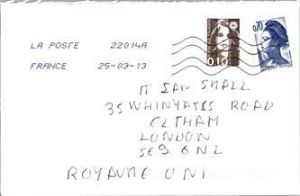 LA POSTE 22014A
FRANCE 25-03-13
0,10
0,70
M SAN SMALL
35 WHINYATES ROAD
ELTHAM
LONDON
SE9 6NL
ROYAUME UNI